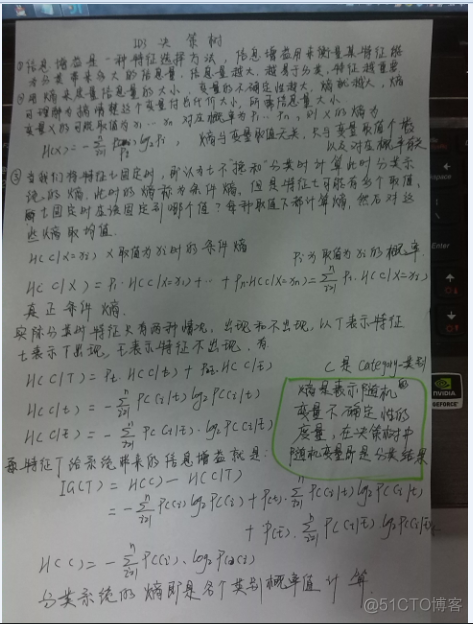 ID3 决策树
①信息增益是一种特征选择方法，信息增益用来衡量某特征能
为分类带来多大的信息量，信息量越大，越易于分类，特征越重要
②用熵来度量信息量的大小，变量的不确定性越大，熵就越大，熵
可理解为搞清楚这个变量付出代价大小，所需信息量大小
变量X的可能取值为x₁…xₙ 对应概率为p₁…pₙ，则X的熵为
H(X) = -∑ pᵢ log₂pᵢ，熵与变量取值无关，只与变量取值个数
以及对应概率有关
③当我们将特征t固定时，
统的熵，此时的熵称为条件熵，但是特征t可能有多个取值，
t固定时应该固定到哪个值？每种取值下都计算熵，然后对这
些熵取均值．
H(C|X=xᵢ) X取值为xᵢ时的条件熵
pᵢ为取值为xᵢ的概率．
H(C|X) = p₁·H(C|X=x₁)+…+pₙ·H(C|X=xₙ)=∑ pᵢ·H(C|X=xᵢ)
真正条件熵．
实际分类时特征只有两种情况，出现和不出现，以T表示特征
t表示T出现，t̄表示特征不出现．有
C是category类别
H(C|T) = Pt·H(C|t) + Pt̄·H(C|t̄)
H(C|t) = -∑ P(Ci|t) log₂P(Ci|t)
H(C|t̄) = -∑ P(Ci|t̄)·log₂P(Ci|t̄)
熵是表示随机
变量不确定性的
度量，在决策树中
随机变量即是分类结果
特征T给系统带来的信息增益就是：
IG(T) = H(C) - H(C|T)
= -∑ P(Ci) log₂P(Ci) + P(t)·∑ P(Ci|t) log₂P(Ci|t)
+ P(t̄)·∑ P(Ci|t̄) log₂P(Ci|t̄)
H(C) = -∑ P(Ci)·log₂P(Ci)
分类系统的熵即是各个类别概率值计算．
NVIDIA
GEFORCE
@51CTO博客